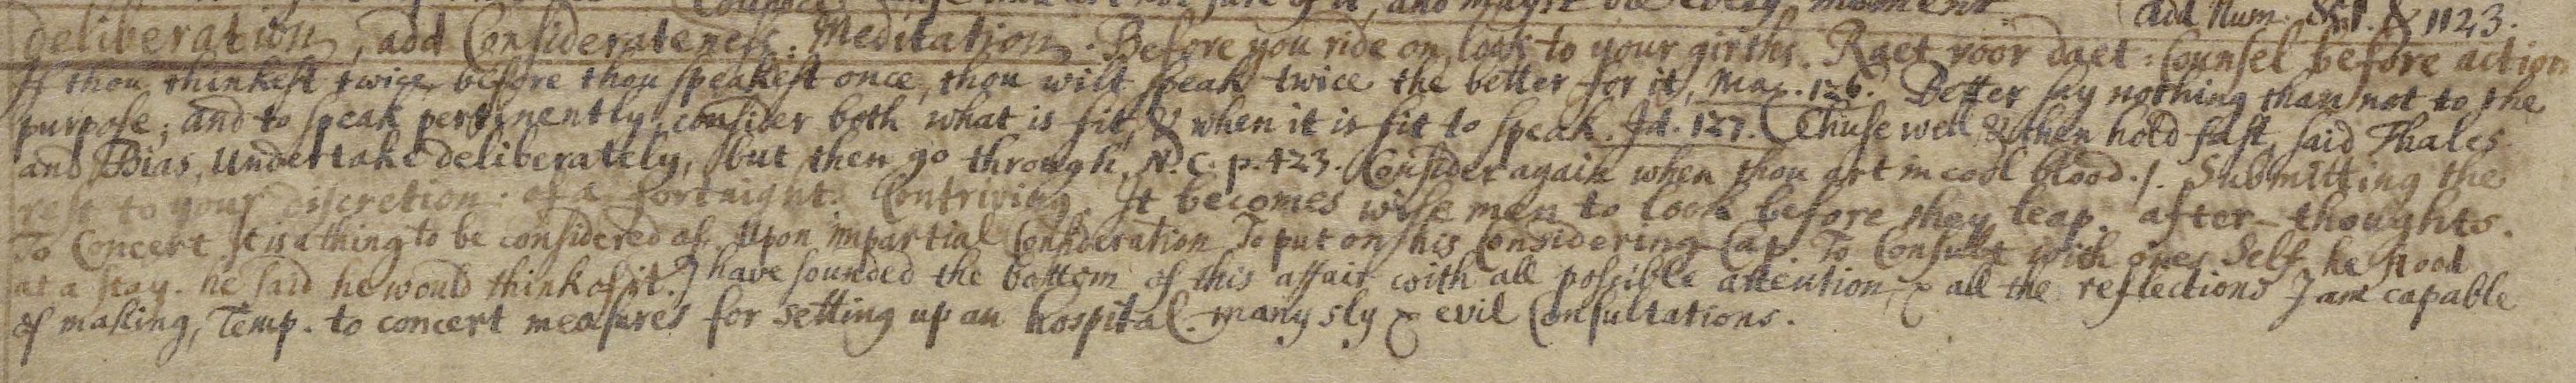 add Num. & 1123.
deliberation, add Considerateness. Meditation. Before you ride on look to your girths. Raet voor daet: Counsel before action
If thou thinkest twice before thou speakest once, thou wilt speak twice the better for it, Max. 126. Better say nothing than not to the
purpose; and to speak pertinently, consider both what is fit, & when it is fit to speak. Id. 127. Chuse well & then hold fast, said Thales
and Bias, Undertake deliberately, but then go through. N.C. p. 423. Consider again when thou art in cool blood. /. Submitting the
rest to your discretion. of a fortnight. Contriving. It becomes wise men to look before they leap. after-thoughts.
To Concert. It is a thing to be considered of. Upon impartial Consideration To put on his Considering Cap. To Consult with ones Self he stood
at a stay. he said he would think of it. I have sounded the bottom of this affair with all possible attention, & all the reflections I am capable
of making, Temp. to concert measures for setting up an hospital. many sly & evil Consultations.